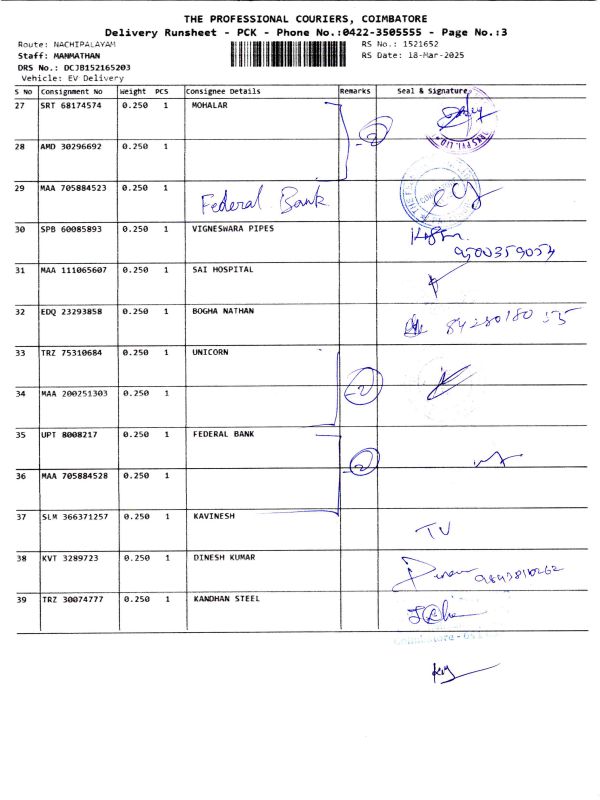 THE PROFESSIONAL COURIERS, COIMBATORE
Delivery Runsheet - PCK - Phone No.:0422-3505555 - Page No.:3
Route: NACHIPALAYAM RS No.: 1521652
Staff: MANMATHAN RS Date: 18-Mar-2025
DRS No.: DCJB152165203
Vehicle: EV Delivery
S NO Consignment No Weight PCS Consignee Details Remarks Seal & Signature
27 SRT 68174574 0.250 1 MOHALAR
2
28 AMD 30296692 0.250 1
29 MAA 705884523 0.250 1 Federal Bank
30 SPB 60085893 0.250 1 VIGNESWARA PIPES
9500359054
31 MAA 111065607 0.250 1 SAI HOSPITAL
32 EDQ 23293858 0.250 1 BOGHA NATHAN
84280180 55
33 TRZ 75310684 0.250 1 UNICORN
2
34 MAA 200251303 0.250 1
35 UPT 8008217 0.250 1 FEDERAL BANK
2
36 MAA 705884528 0.250 1
37 SLM 366371257 0.250 1 KAVINESH
TV
38 KVT 3289723 0.250 1 DINESH KUMAR
39 TRZ 30074777 0.250 1 KANDHAN STEEL